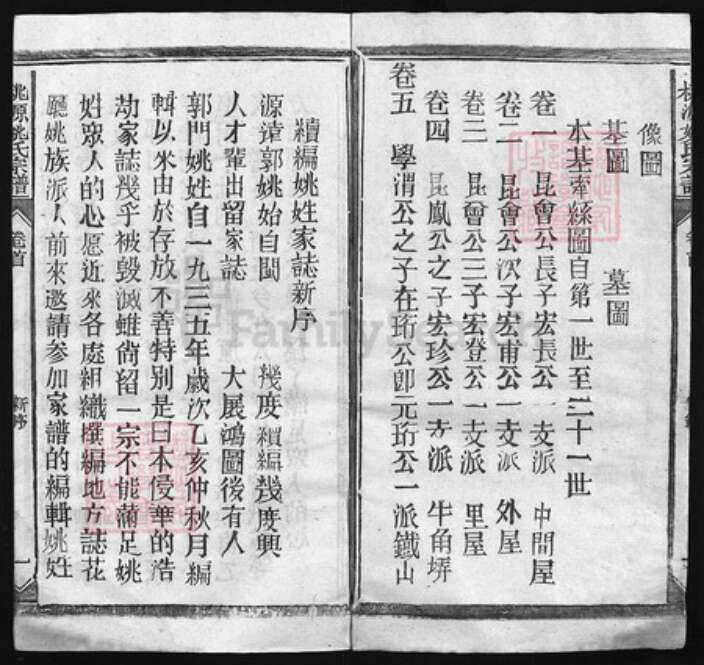 像圖
基圖　墓圖
本基牽絲圖自第一世至二十一世
卷一　昆會公長子宏長公一支派　中間屋
卷二　昆會公次子宏甫公一支派　外屋
卷三　昆會公三子宏登公一支派　里屋
卷四　昆鳳公之子宏珍公一支派　牛角塀
卷五　學渭公之子在珩公卽元珩公一派鐵山
續編姚姓家誌新序
源遠郭姚始自閩　幾度續編幾度興
人才輩出留家誌　大展鴻圖後有人
郭門姚姓自一九三五年歲次乙亥仲秋月編
輯以來由於存放不善特別是日本侵華的浩
劫家誌幾乎被毀滅雖尙留一宗不能滿足姚
姓眾人的心愿近來各庭組織撰編地方誌花
廳姚族派人前來邀請參加家譜的編輯姚姓
桃源姚氏宗譜　卷首　新序　一
FamilySearch